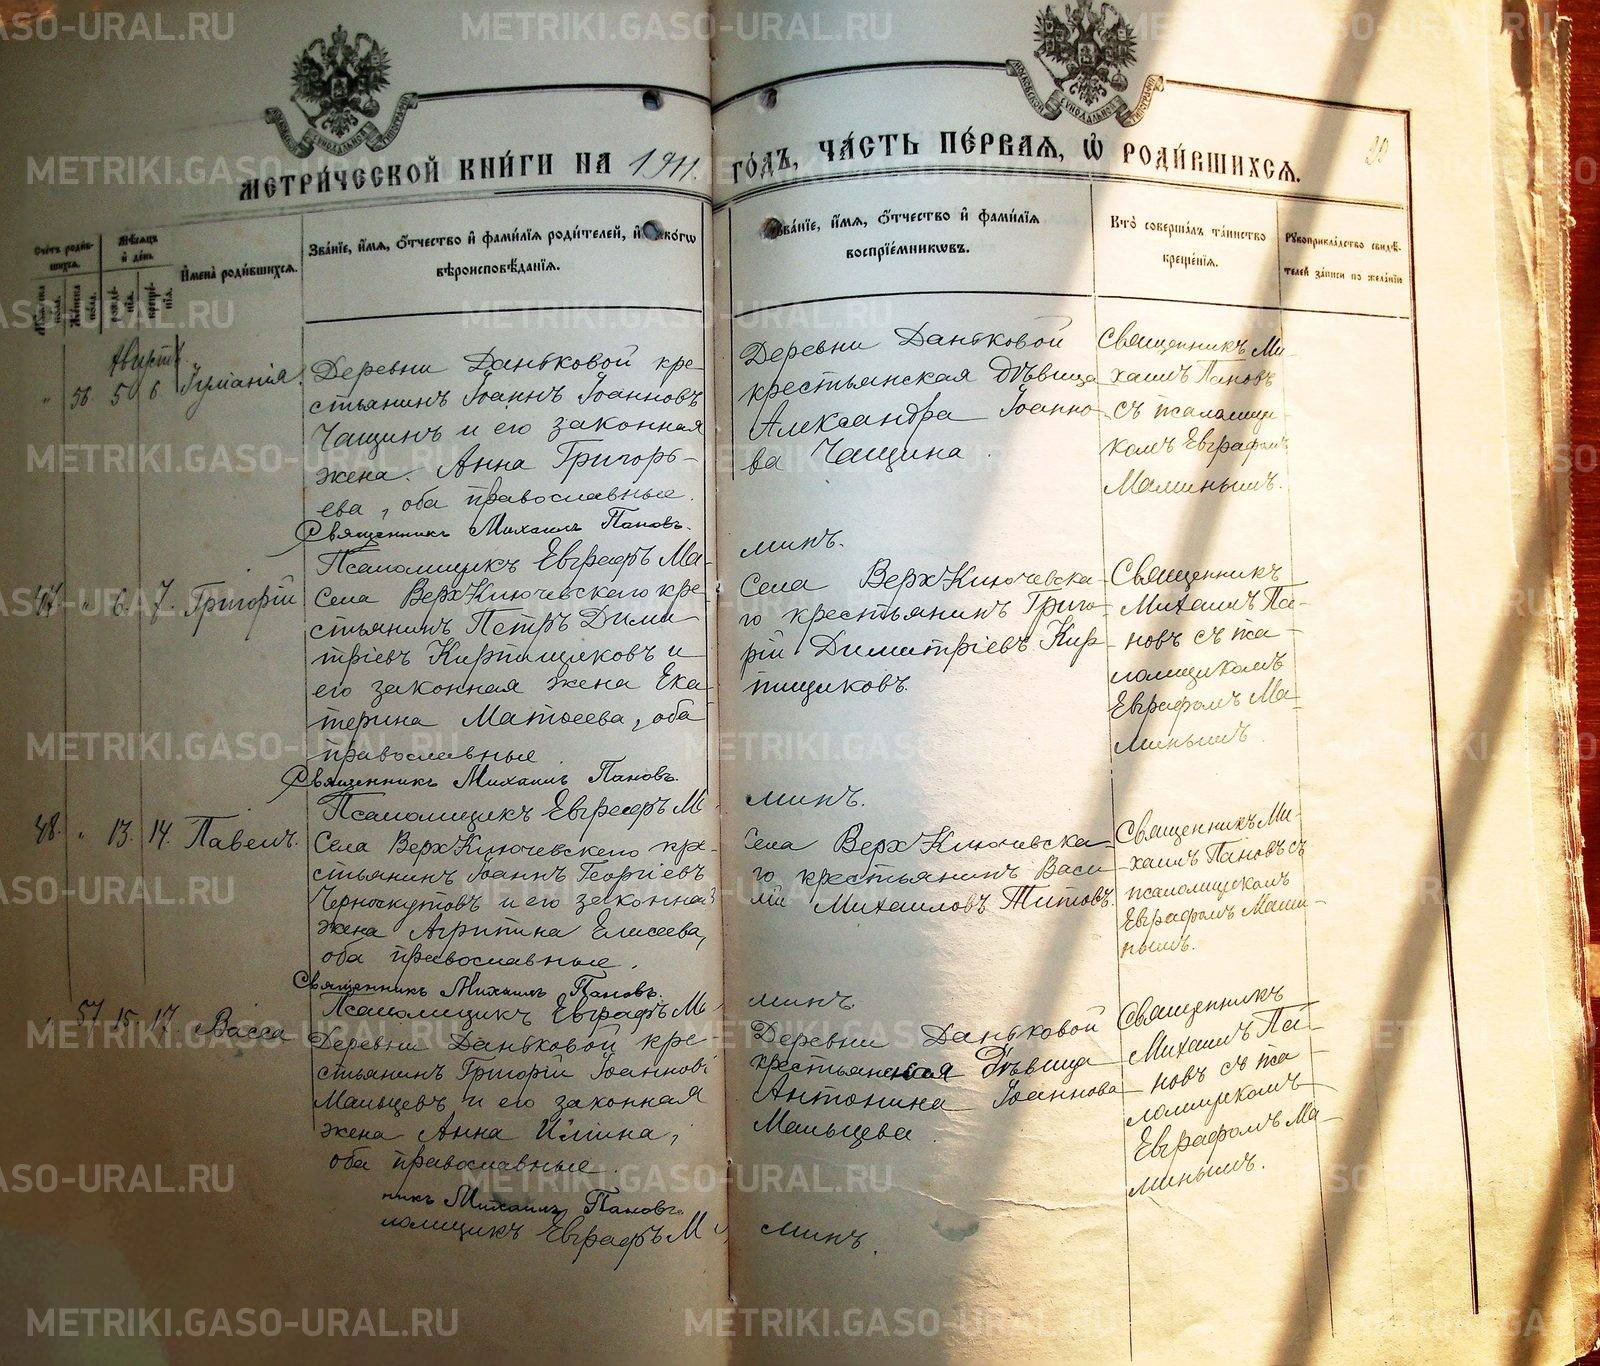 МЕТРИ́ЧЕСКОЙ КНИ́ГИ НА 1911 ГО́ДЪ, ЧА́СТЬ ПЕ́РВАѦ, Ѡ҆ РОДИ́ВШИХСѦ.
МОСКОВСКОЙ СѴНОДАЛЬНОЙ ТИПОГРАФІИ
МОСКОВСКОЙ СѴНОДАЛЬНОЙ ТИПОГРАФІИ
Сче́тъ роди́в-
шихсѧ.
Мѣ́сѧцъ
и҆ де́нь
И҆мена̀ роди́вшихсѧ.
Зва́нїе, и҆́мѧ, ѻ҆́тчество и҆ фами́лїѧ роди́телей, и҆ како́гѡ
вѣроисповѣ́данїѧ.
Зва́нїе, и҆́мѧ, ѻ҆́тчество и҆ фами́лїѧ
воспрїе́мникѡвъ.
Кто̀ соверша́лъ та́инство
креще́нїѧ.
Рꙋкоприкла́дство свидѣ́-
телей за́писи по жела́нїю
Августъ
56 5 6 Іуліанія.
Деревни Даньковой кре-
стьянинъ Іоаннъ Іоанновъ
Чащинъ и его законная
жена Анна Григорь-
ева, оба православные.
Священникъ Михаилъ Пановъ.
Псаломщикъ Евграфъ Ма-
минъ.
Деревни Даньковой
крестьянская дѣвица
Александра Іоанно-
ва Чащина
Священникъ Ми-
хаилъ Пановъ
съ псаломщи-
комъ Евграфомъ
Маминымъ.
47 " 6. 7. Григорій
Села ВерхКлючевского кре-
стьянинъ Петръ Дими-
тріевъ Кирпищиковъ и
его законная жена Ека-
терина Матѳеева, оба
православные
Священникъ Михаилъ Пановъ.
Псаломщикъ Евграфъ Ма-
минъ.
Села ВерхКлючевска-
го крестьянинъ Григо-
рій Димитріевъ Кир-
пищиковъ.
Священникъ
Михаилъ Па-
новъ съ пса-
ломщикомъ
Евграфомъ Ма-
минымъ.
48. " 13. 14. Павелъ.
Села ВерхКлючевского кре-
стьянинъ Іоаннъ Георгіевъ
Черноскутовъ и его законная
жена Агрипина Елисеева,
оба православные.
Священникъ Михаилъ Пановъ.
Псаломщикъ Евграфъ Ма-
минъ
Села ВерхКлючевска-
го крестьянинъ Васи-
лій Михаиловъ Титовъ.
Священникъ Ми-
хаилъ Пановъ съ
псаломщикомъ
Евграфомъ Мами-
нымъ.
" 57 15 17. Васса
Деревни Даньковой кре-
стьянинъ Григорій Іоанновъ
Мальцевъ и его законная
жена Анна Ильина,
оба православные.
никъ Михаилъ Пановъ.
ломщикъ Евграфъ Ма-
минъ.
Деревни Даньковой
крестьянская дѣвица
Антонина Іоаннова
Мальцева
Священникъ
Михаилъ Па-
новъ съ пса-
ломщикомъ
Евграфомъ Ма-
минымъ.
METRIKI.GASO-URAL.RU